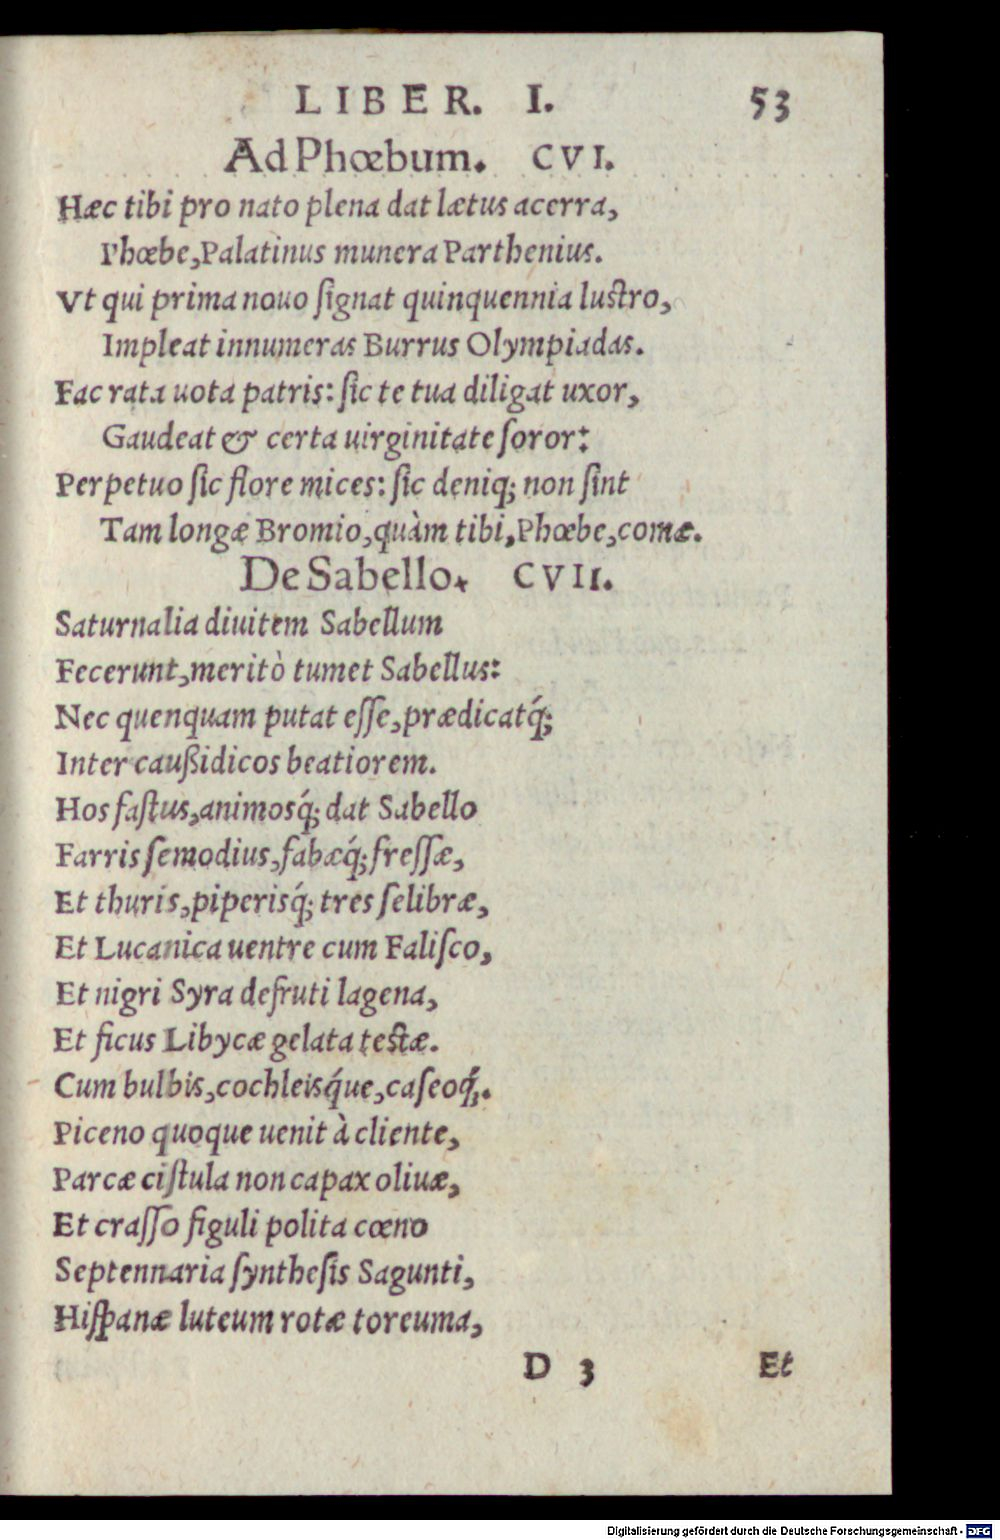 LIBER. I. 53
Ad Phœbum. CVI.
Hæc tibi pro nato plena dat lætus acerra,
Phœbe, Palatinus munera Parthenius.
Vt qui prima nouo ſignat quinquennia luſtro,
Impleat innumeras Burrus Olympiadas.
Fac rata uota patris: ſic te tua diligat uxor,
Gaudeat & certa uirginitate ſoror:
Perpetuo ſic flore mices: ſic deniq; non ſint
Tam longæ Bromio, quàm tibi, Phœbe, comæ.
De Sabello. CVII.
Saturnalia diuitem Sabellum
Fecerunt, meritò tumet Sabellus:
Nec quenquam putat eſſe, prædicatq́;
Inter caußidicos beatiorem.
Hos faſtus, animosq́; dat Sabello
Farris ſemodius, fabæq́; freſſæ,
Et thuris, piperisq́; tres ſelibræ,
Et Lucanica uentre cum Faliſco,
Et nigri Syra defruti lagena,
Et ficus Libycæ gelata teſtæ.
Cum bulbis, cochleisq́ue, caſeoq́;.
Piceno quoque uenit à cliente,
Parcæ ciſtula non capax oliuæ,
Et craſſo figuli polita cœno
Septennaria ſyntheſis Sagunti,
Hiſpanæ luteum rotæ toreuma,
D 3 Et
Digitalisierung gefördert durch die Deutsche Forschungsgemeinschaft - DFG